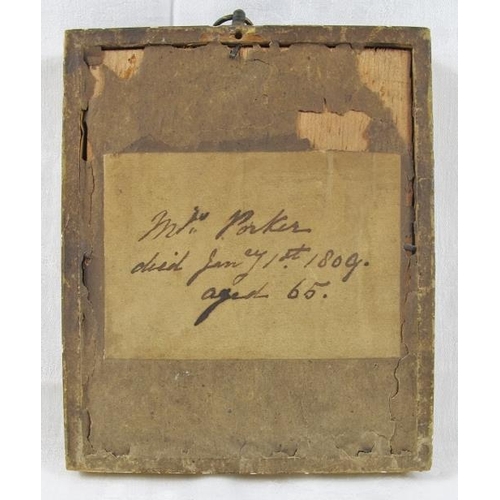 Mrs. Porker
died Jany 1st. 1809.
aged 65.